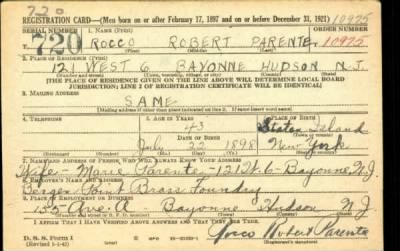 720
REGISTRATION CARD—(Men born on or after February 17, 1897 and on or before December 31, 1921) 10925
SERIAL NUMBER 1. NAME (Print) ORDER NUMBER
720 ROCCO ROBERT PARENTE 10925
2. PLACE OF RESIDENCE (Print)
121 WEST 6 BAYONNE HUDSON N.J.
(Number and street) (Town, township, village, or city) (County) (State)
[THE PLACE OF RESIDENCE GIVEN ON THE LINE ABOVE WILL DETERMINE LOCAL BOARD
JURISDICTION; LINE 2 OF REGISTRATION CERTIFICATE WILL BE IDENTICAL]
3. MAILING ADDRESS
SAME
[Mailing address if other than place indicated on line 2. If same insert word same]
4. TELEPHONE 5. AGE IN YEARS 6. PLACE OF BIRTH
43 Staten Island
DATE OF BIRTH (Town or county)
July 22 1898 New York
(Exchange) (Number) (Mo.) (Day) (Yr.) (State or country)
7. NAME AND ADDRESS OF PERSON WHO WILL ALWAYS KNOW YOUR ADDRESS
Wife - Marie Parente - 121 W. 6 - Bayonne N.J.
8. EMPLOYER'S NAME AND ADDRESS
Bergen Point Brass Foundry
9. PLACE OF EMPLOYMENT OR BUSINESS
155 Ave. A Bayonne Hudson N J
(Number and street or R. F. D. number) (Town) (County) (State)
I AFFIRM THAT I HAVE VERIFIED ABOVE ANSWERS AND THAT THEY ARE TRUE.
D. S. S. Form 1
Rocco Robert Parente